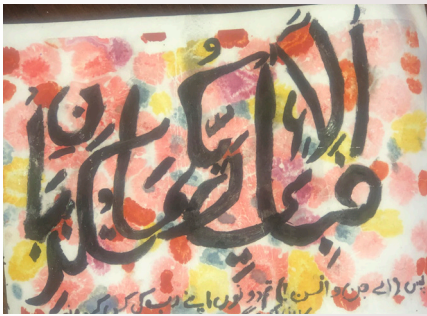 فَبِأَيِّ آلَاءِ رَبِّكُمَا تُكَذِّبَانِ
پس (اے جن و انس) تم دونوں اپنے رب کی کس کس